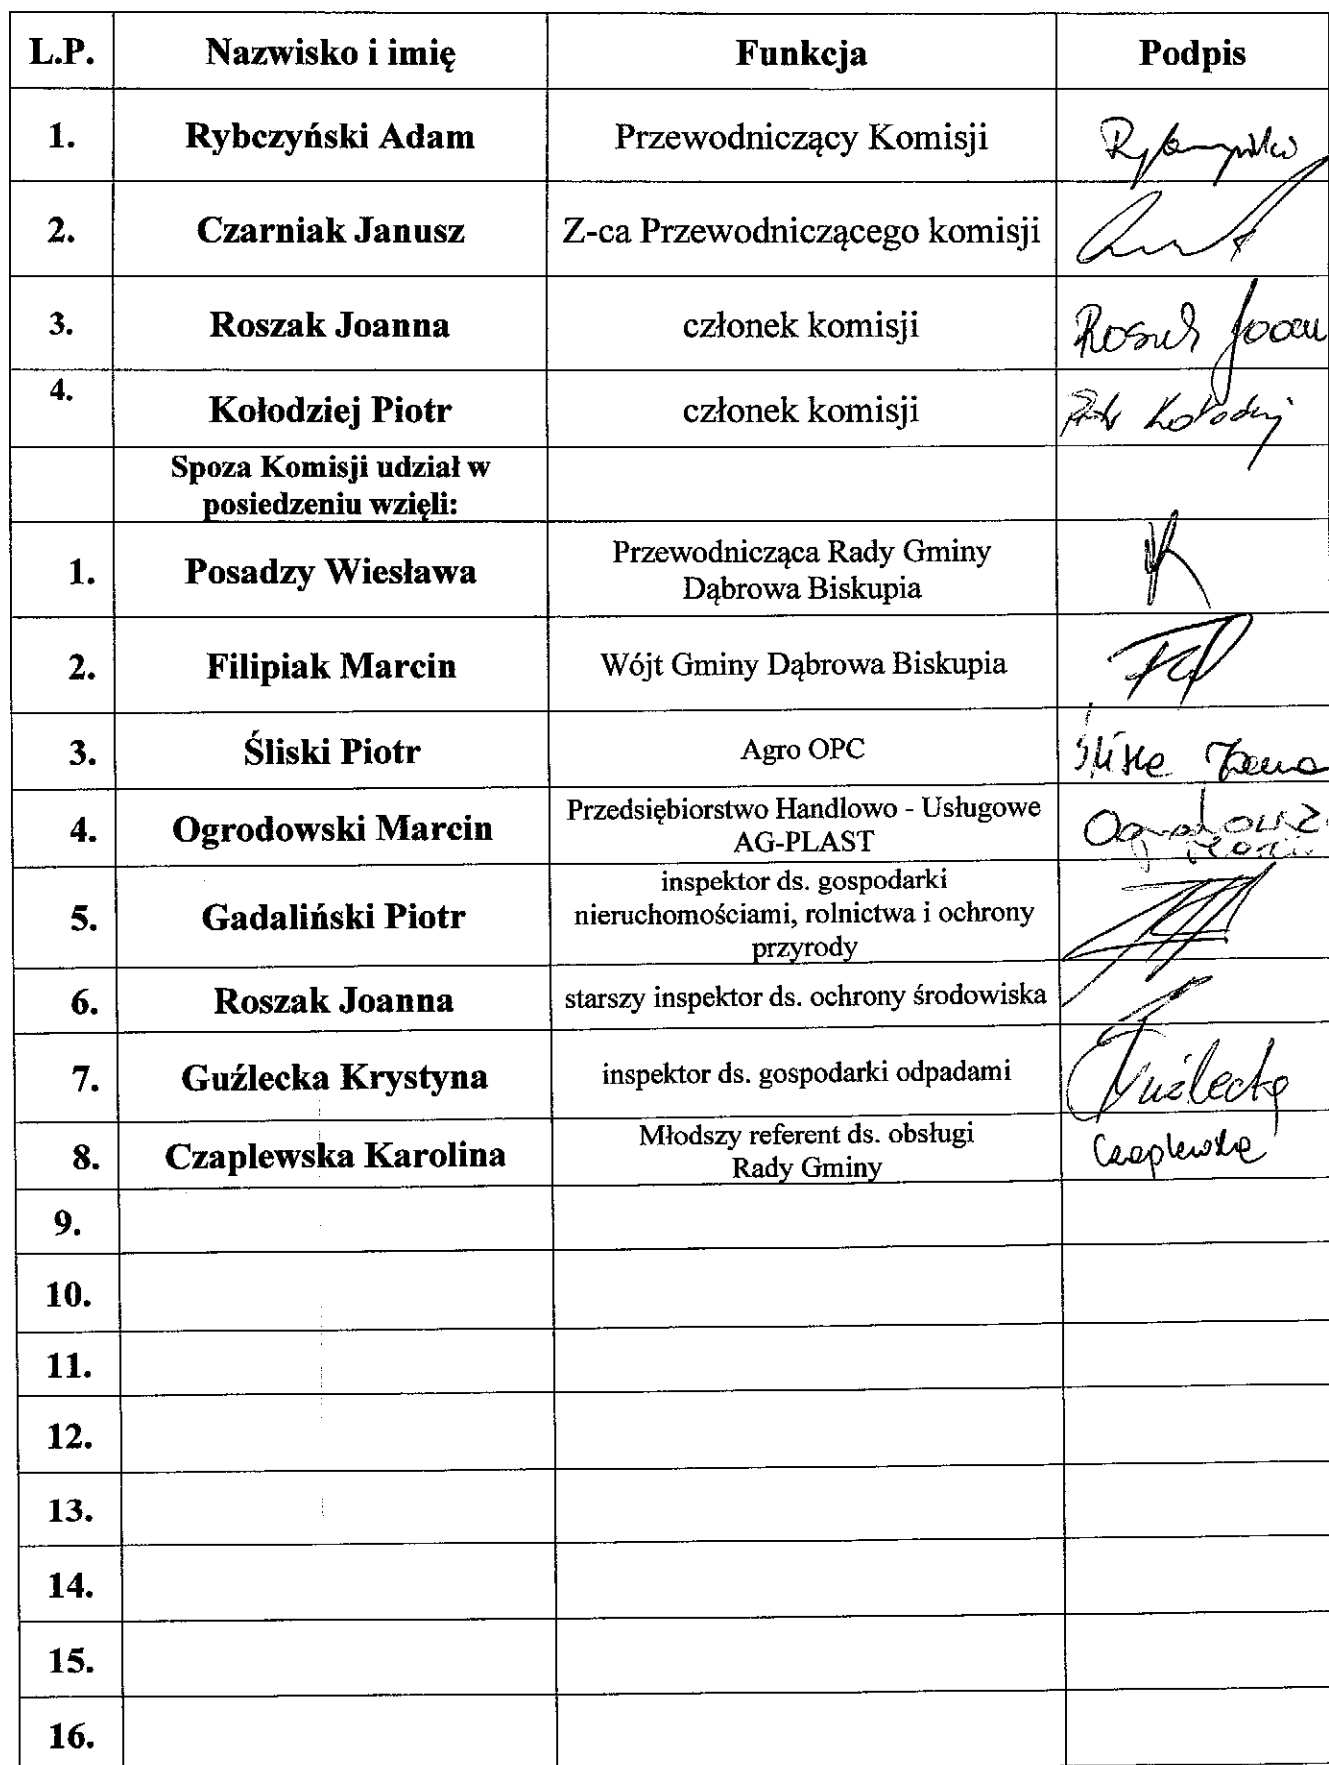 L.P. Nazwisko i imię Funkcja Podpis
1. Rybczyński Adam Przewodniczący Komisji
2. Czarniak Janusz Z-ca Przewodniczącego komisji
3. Roszak Joanna członek komisji
4. Kołodziej Piotr członek komisji Piotr Kołodziej
Spoza Komisji udział w
posiedzeniu wzięli:
1. Posadzy Wiesława Przewodnicząca Rady Gminy
Dąbrowa Biskupia
2. Filipiak Marcin Wójt Gminy Dąbrowa Biskupia
3. Śliski Piotr Agro OPC
4. Ogrodowski Marcin Przedsiębiorstwo Handlowo - Usługowe
AG-PLAST
5. Gadaliński Piotr inspektor ds. gospodarki
nieruchomościami, rolnictwa i ochrony
przyrody
6. Roszak Joanna starszy inspektor ds. ochrony środowiska
7. Guźlecka Krystyna inspektor ds. gospodarki odpadami Guźlecka
8. Czaplewska Karolina Młodszy referent ds. obsługi
Rady Gminy Czaplewska
9.
10.
11.
12.
13.
14.
15.
16.